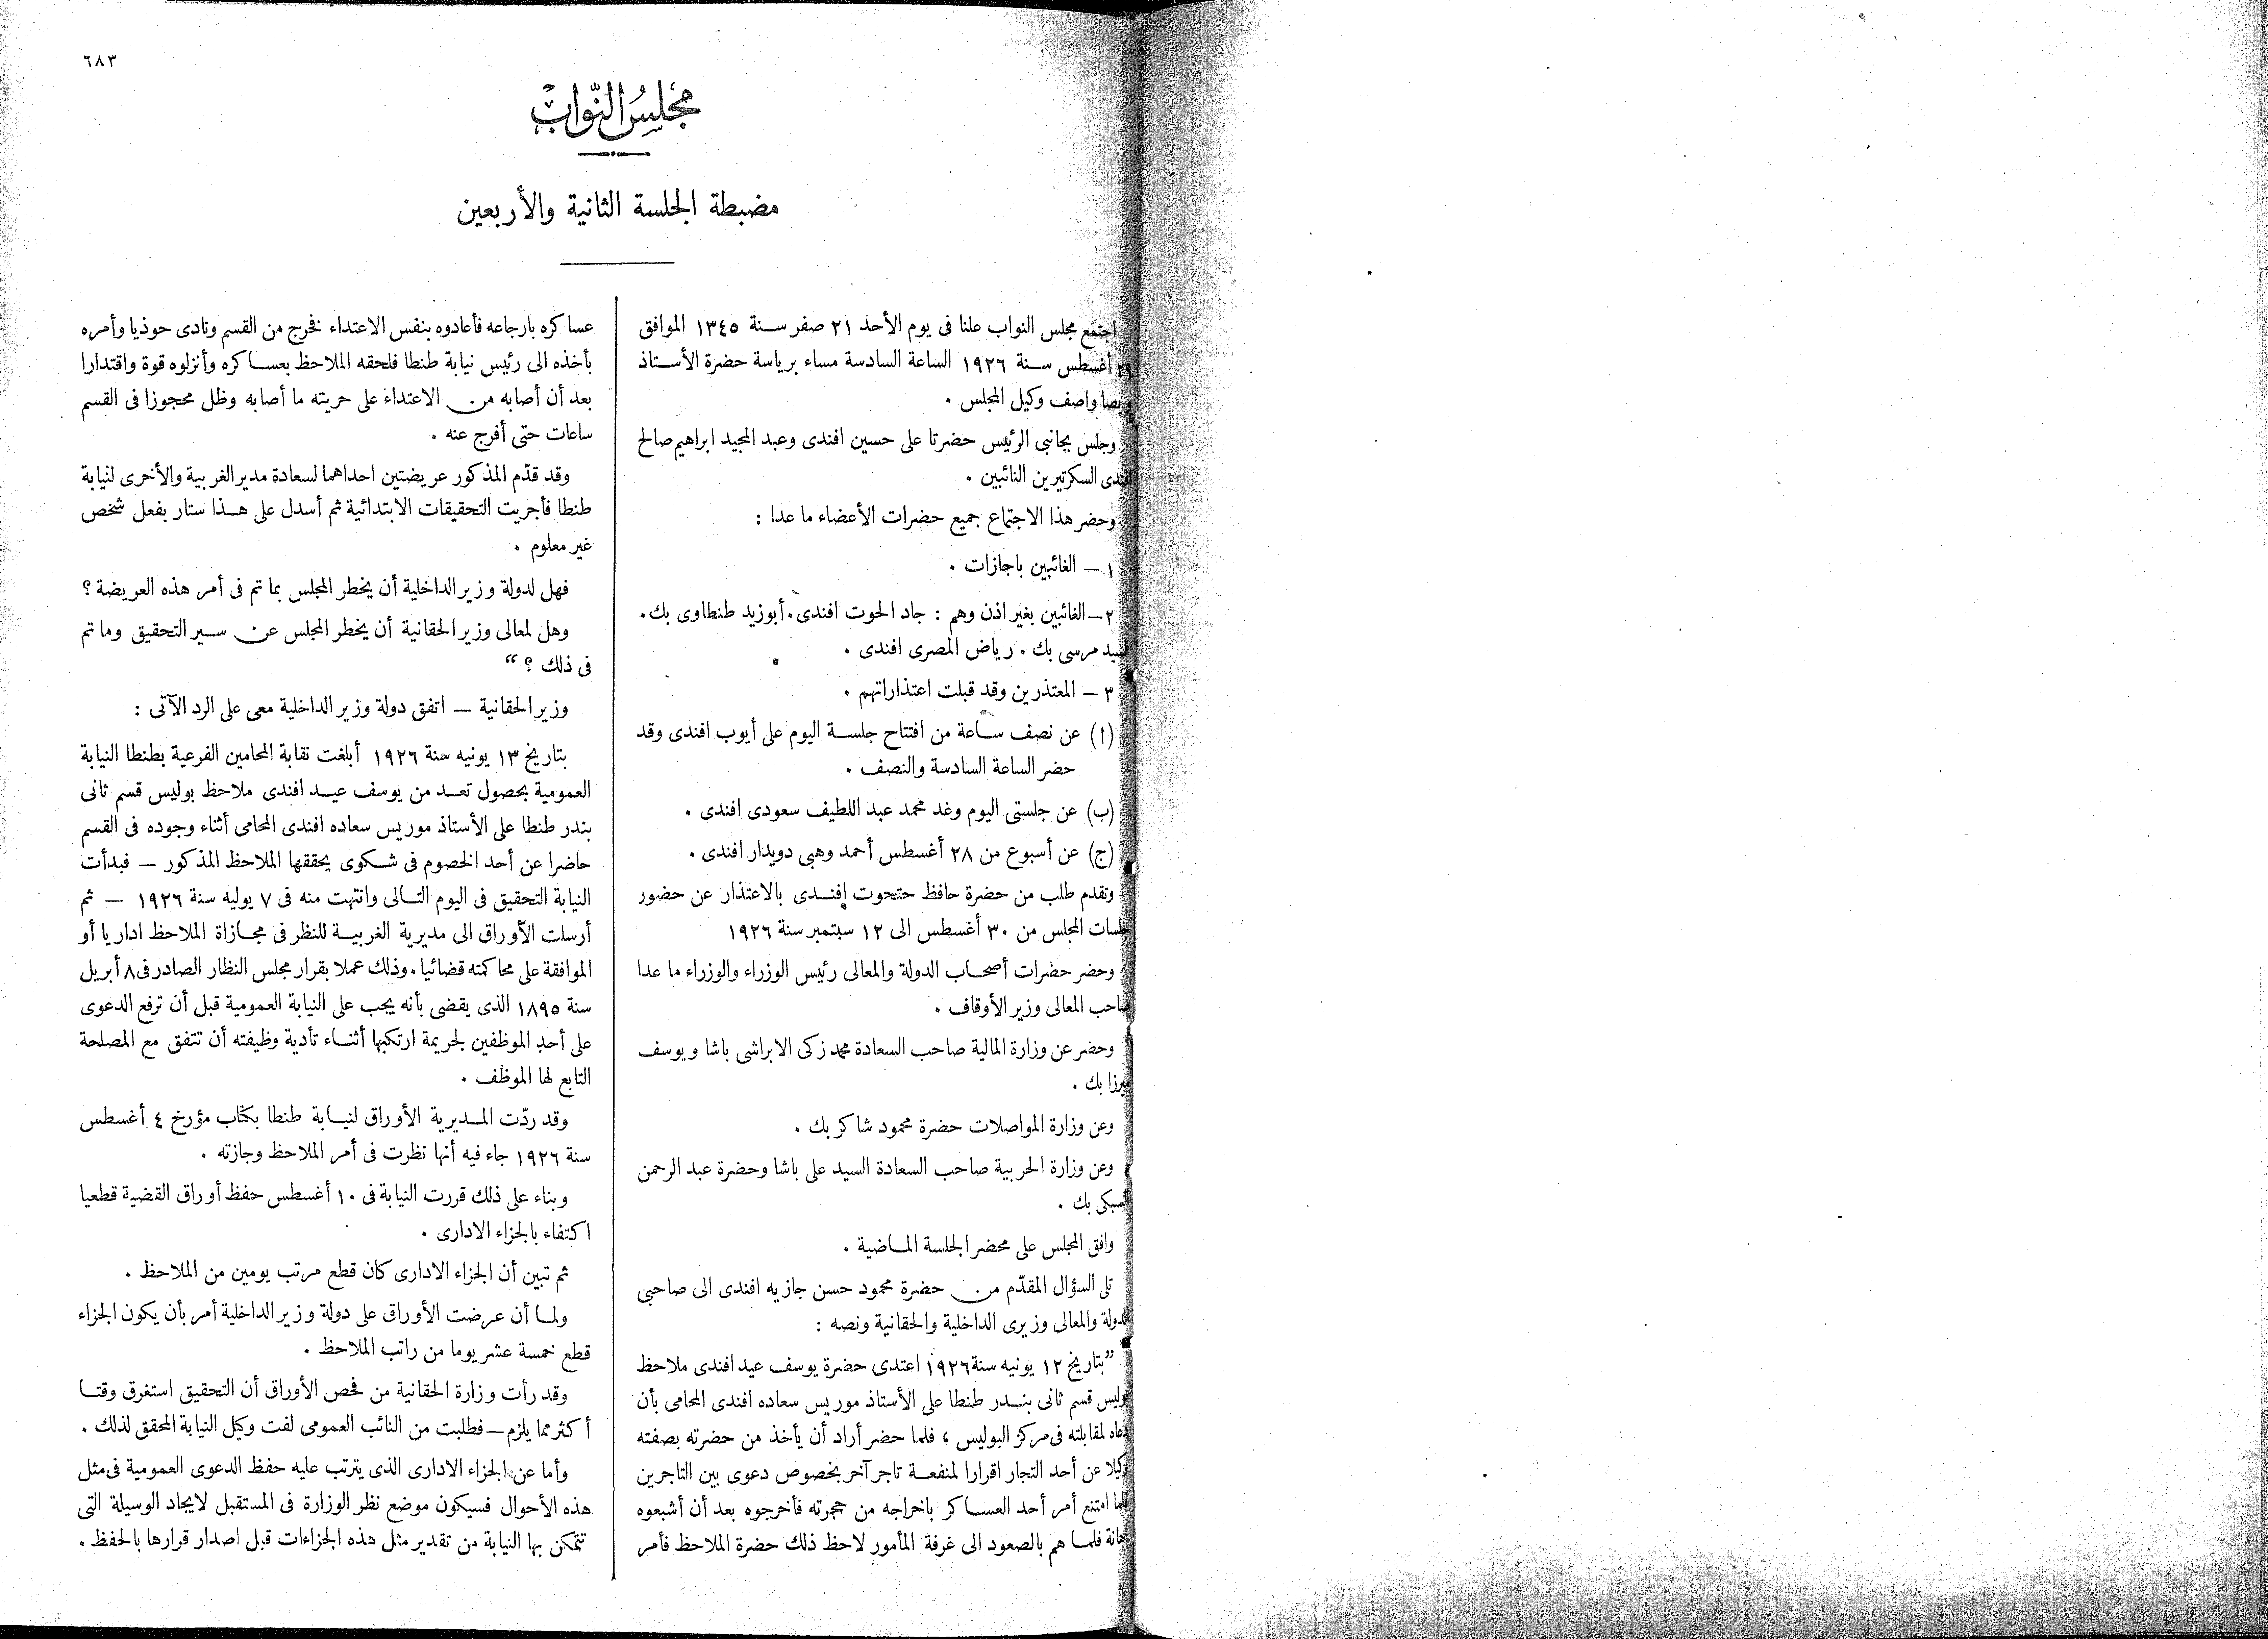 ٦٨٣
مجلس النواب
مضبطة الجلسة الثانية والأربعين
اجتمع مجلس النواب علنا فى يوم الأحد ٢١ صفر سنة ١٣٤٥ الموافق
٢٩ أغسطس سنة ١٩٢٦ الساعة السادسة مساء برياسة حضرة الأستاذ
ويصا واصف وكيل المجلس .
وجلس بجانبى الرئيس حضرتا على حسين افندى وعبد المجيد ابراهيم صالح
افندى السكرتيرين النائبين .
وحضر هذا الاجتماع جميع حضرات الأعضاء ما عدا :
١ — الغائبين باجازات .
٢ — الغائبين بغير اذن وهم : جاد الحوت افندى . أبوزيد طنطاوى بك .
السيد مرسى بك . رياض المصرى افندى .
٣ — المعتذرين وقد قبلت اعتذاراتهم .
(ا) عن نصف ساعة من افتتاح جلسة اليوم على أيوب افندى وقد
حضر الساعة السادسة والنصف .
(ب) عن جلستى اليوم وغد محمد عبد اللطيف سعودى افندى .
(ج) عن أسبوع من ٢٨ أغسطس أحمد وهبى دويدار افندى .
وتقدم طلب من حضرة حافظ حتحوت افندى بالاعتذار عن حضور
جلسات المجلس من ٣٠ أغسطس الى ١٢ سبتمبر سنة ١٩٢٦
وحضر حضرات أصحاب الدولة والمعالى رئيس الوزراء والوزراء ما عدا
صاحب المعالى وزير الأوقاف .
وحضر عن وزارة المالية صاحب السعادة محمد زكى الابراشى باشا ويوسف
ميرزا بك .
وعن وزارة المواصلات حضرة محمود شاكر بك .
وعن وزارة الحربية صاحب السعادة السيد على باشا وحضرة عبد الرحمن
السبكى بك .
وافق المجلس على محضر الجلسة الماضية .
تلى السؤال المقدّم من حضرة محمود حسن جازيه افندى الى صاحبى
الدولة والمعالى وزيرى الداخلية والحقانية ونصه :
”بتاريخ ١٢ يونيه سنة ١٩٢٦ اعتدى حضرة يوسف عيد افندى ملاحظ
بوليس قسم ثانى بندر طنطا على الأستاذ موريس سعاده افندى المحامى بأن
دعاه لمقابلته فى مركز البوليس ، فلما حضر أراد أن يأخذ من حضرته بصفته
وكيلا عن أحد التجار اقرارا لمنفعة تاجر آخر بخصوص دعوى بين التاجرين
فلما امتنع أمر أحد العساكر باخراجه من حجرته فأخرجوه بعد أن أشبعوه
اهانة فلما هم بالصعود الى غرفة المأمور لاحظ ذلك حضرة الملاحظ فأمر
عساكره بارجاعه فأعادوه بنفس الاعتداء فخرج من القسم ونادى حوذيا وأمره
بأخذه الى رئيس نيابة طنطا فلحقه الملاحظ بعساكره وأنزلوه قوة واقتدارا
بعد أن أصابه من الاعتداء على حريته ما أصابه وظل محجوزا فى القسم
ساعات حتى أفرج عنه .
وقد قدّم المذكور عريضتين احداهما لسعادة مدير الغربية والأخرى لنيابة
طنطا فأجريت التحقيقات الابتدائية ثم أسدل على هذا ستار بفعل شخص
غير معلوم .
فهل لدولة وزير الداخلية أن يخطر المجلس بما تم فى أمر هذه العريضة ؟
وهل لمعالى وزير الحقانية أن يخطر المجلس عن سير التحقيق وما تم
فى ذلك ؟ “
وزير الحقانية — اتفق دولة وزير الداخلية معى على الرد الآتى :
بتاريخ ١٣ يونيه سنة ١٩٢٦ أبلغت نقابة المحامين الفرعية بطنطا النيابة
العمومية بحصول تعد من يوسف عيد افندى ملاحظ بوليس قسم ثانى
بندر طنطا على الأستاذ موريس سعاده افندى المحامى أثناء وجوده فى القسم
حاضرا عن أحد الخصوم فى شكوى يحققها الملاحظ المذكور — فبدأت
النيابة التحقيق فى اليوم التالى وانتهت منه فى ٧ يوليه سنة ١٩٢٦ — ثم
أرسلت الأوراق الى مديرية الغربية للنظر فى مجازاة الملاحظ اداريا أو
الموافقة على محاكمته قضائيا . وذلك عملا بقرار مجلس النظار الصادر فى ٨ أبريل
سنة ١٨٩٥ الذى يقضى بأنه يجب على النيابة العمومية قبل أن ترفع الدعوى
على أحد الموظفين لجريمة ارتكبها أثناء تأدية وظيفته أن تتفق مع المصلحة
التابع لها الموظف .
وقد ردّت المديرية الأوراق لنيابة طنطا بكتاب مؤرخ ٤ أغسطس
سنة ١٩٢٦ جاء فيه أنها نظرت فى أمر الملاحظ وجازته .
وبناء على ذلك قررت النيابة فى ١٠ أغسطس حفظ أوراق القضية قطعيا
اكتفاء بالجزاء الادارى .
ثم تبين أن الجزاء الادارى كان قطع مرتب يومين من الملاحظ .
ولما أن عرضت الأوراق على دولة وزير الداخلية أمر بأن يكون الجزاء
قطع خمسة عشر يوما من راتب الملاحظ .
وقد رأت وزارة الحقانية من فحص الأوراق أن التحقيق استغرق وقتا
أكثر مما يلزم — فطلبت من النائب العمومى لفت وكيل النيابة المحقق لذلك .
وأما عن الجزاء الادارى الذى يترتب عليه حفظ الدعوى العمومية فى مثل
هذه الأحوال فسيكون موضع نظر الوزارة فى المستقبل لايجاد الوسيلة التى
تتمكن بها النيابة من تقدير مثل هذه الجزاءات قبل اصدار قرارها بالحفظ .